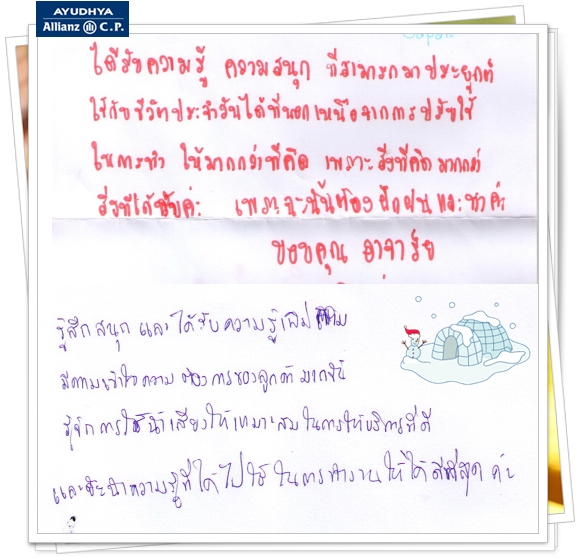 AYUDHYA
Allianz C.P.
Japan
ได้รับความรู้ ความสนุก ที่สามารถมาประยุกต์
ใช้กับชีวิตประจำวันได้ที่นอกเหนือจากการปรับใช้
ในการทำ ให้มากกว่าที่คิด เพราะสิ่งที่คิด มากกว่า
สิ่งที่ได้รับค่ะ เพราะฉะนั้นต้องฝึกฝนและทำค่ะ
ขอบคุณ อาจารย์
รู้สึกสนุก และได้รับความรู้เพิ่มเติม
มีความเข้าใจความต้องการของลูกค้ามากขึ้น
รู้จักการใช้น้ำเสียงให้เหมาะสมในการให้บริการที่ดี
และจะนำความรู้ที่ได้ไปใช้ในการทำงานให้ได้ดีที่สุด ค่ะ